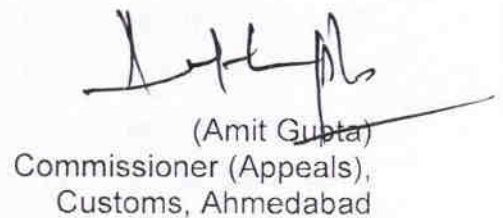 (Amit Gupta)
Commissioner (Appeals),
Customs, Ahmedabad